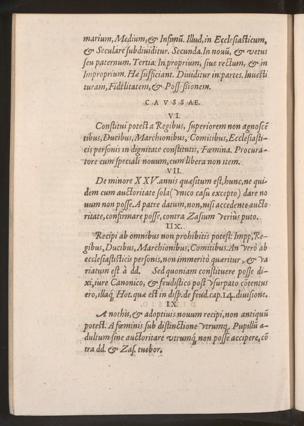 marium, Medium, & Infimũ. Illud, in Ecclesiasticum,
& Seculare subdiuiditur. Secunda. In nouũ, & vetus
seu paternum. Tertia: In proprium, siue rectum, & in
Improprium. Hæ sufficiant. Diuiditur in partes. Inuesti
turam, Fidelitatem, & Possessionem.
CAVSSAE.
VI.
Constitui potest a Regibus, superiorem non agnoscẽ
tibus, Ducibus, Marchionibus, Comitibus, Ecclesiasti-
cis personis in dignitate constitutis, Fœmina. Procura-
tore cum speciali nouum, cum libera non item.
VII.
De minore XXV. annis quæsitum est, hunc, ne qui
dem cum auctoritate sola (vnico casu excepto) dare no
uum non posse. A patre datum, non, nisi accedente aucto
ritate, confirmare posse, contra Zasium verius puto.
IIX.
Recipi ab omnibus non prohibitis potest. Impp. Re-
gibus, Ducibus, Marchionibus, Comitibus. An vero ab
ecclesiasticis personis, non immerito quæritur, & va
riatum est a dd. Sed quoniam constituere posse di-
xi, iure Canonico, & feudistico post vsurpato cõtentus
ero, illaq; Hot. quæ est in disp. de feud. cap. 14. diuisione.
IX.
A nothis, & adoptiuis nouum recipi, non antiquũ
potest. A fœminis sub distinctione vtrumq;. Pupillũ a-
dultum sine auctoritate vtrumq; non posse accipere, cõ
tra dd. & Zas. tuebor.